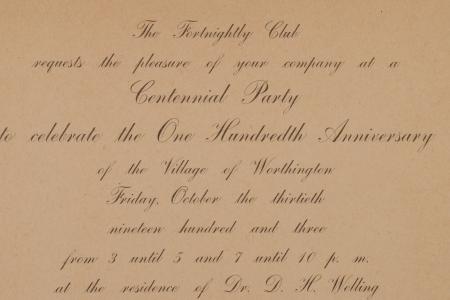 The Fortnightly Club
requests the pleasure of your company at a
Centennial Party
to celebrate the One Hundredth Anniversary
of the Village of Worthington
Friday, October the thirtieth
nineteen hundred and three
from 3 until 5 and 7 until 10 p. m.
at the residence of Dr. D. H. Welling